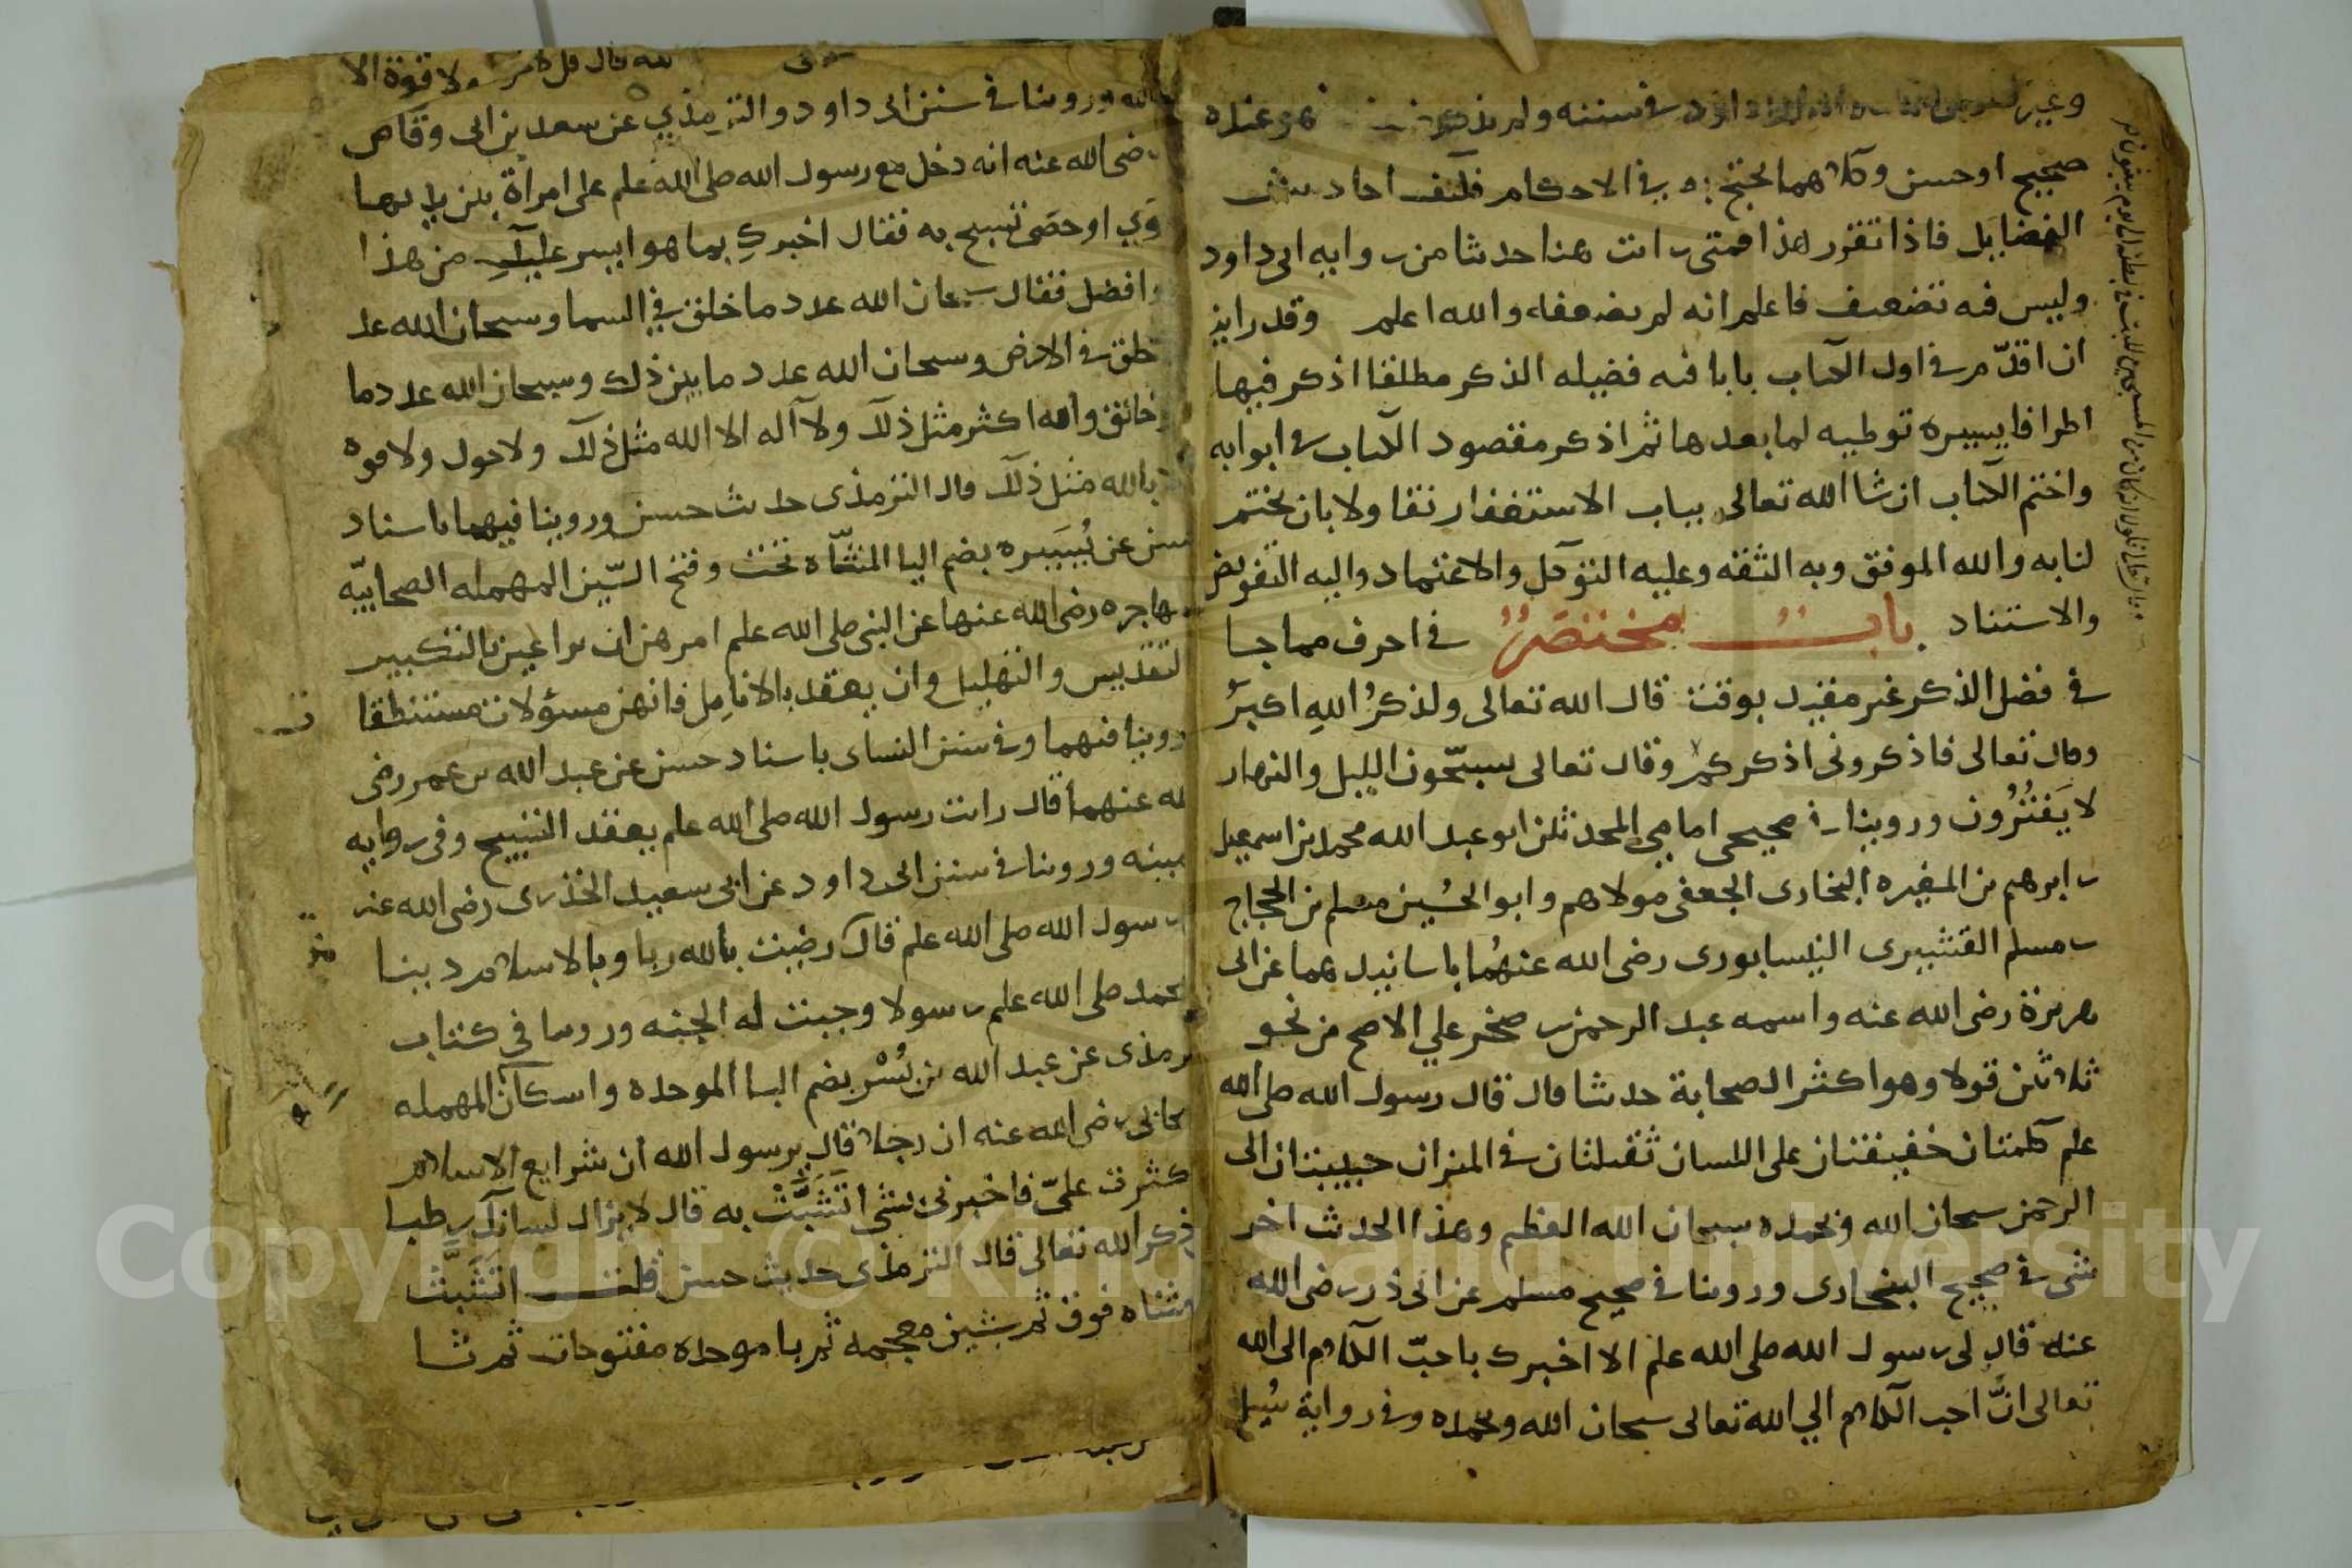 وغير ابو داود في سننه ولم يذكر فهو عنده
صحيح او حسن وكلاهما يحتج به في الاحكام فكيف احاديث
الفضايل فاذا تقرر هذا فمتى رايت هنا حديثا من رواية ابي داود
وليس فيه تضعيف فاعلم انه لم يضعفه والله اعلم وقد رايت
ان اقدّم في اول الكتاب بابا في فضيله الذكر مطلقا اذكر فيها
اطرافا يسيره توطيه لما بعدها ثم اذكر مقصود الكتاب في ابوابه
واختم الكتاب ان شا الله تعالى بباب الاستغفار تفاولا بان يختم
لنا به والله الموفق وبه الثقه وعليه التوكل والاعتماد واليه التفويض
والاستناد بابٌ مختصرٌ في احرف مما جا
في فضل الذكر غير مقيد بوقت قال الله تعالى ولذكرُ اللهِ اكبرُ
وقال تعالى فاذكروني اذكركم وقال تعالى يسبّحون الليل والنهار
لا يَفتُرُون وروينا في صحيحي امامي المحدثين ابو عبد الله محمد بن اسمعيل
بن ابرهيم بن المغيره البخاري الجعفي مولاهم وابو الحُسين مسلم بن الحجاج
بن مسلم القشيري النيسابوري رضي الله عنهُما باسانيدهما عن ابي
هريرة رضي الله عنه واسمه عبد الرحمن بن صخر علي الاصح من نحو
ثلاثين قولا وهو اكثر الصحابة حديثا قال قال رسول الله صلى الله
علم كلمتان خفيفتان على اللسان ثقيلتان في الميزان حبيبتان الى
الرحمن سبحان الله وبحمده سبحان الله العظيم وهذا الحديث اخر
شي في صحيح البخاري وروينا في صحيح مسلم عن ابي ذر رضي الله
عنه قال لي رسول الله صلى الله علم الا اخبرك باحبّ الكلام الى الله
تعالى انَّ احب الكلام الي الله تعالى سبحان الله وبحمده وفي رواية سُيل
ولا قوة الا
بالله وروينا في سنن ابي داود والترمذي عن سعد بن ابي وقاص
رضي الله عنه انه دخل مع رسول الله صلى الله علم على امراة بين يديها
نوَي او حصَى تسبح به فقال اخبركِ بما هو ايسر عليكِ من هذا
وافضل فقال سبحان الله عدد ما خلق في السما وسبحان الله عد
خلق في الارض وسبحان الله عدد ما بين ذلك وسبحان الله عدد ما
خالق والله اكثر مثل ذلك ولا اله الا الله مثل ذلك ولا حول ولا قوه
الا بالله مثل ذلك قال الترمذي حديث حسن وروينا فيهما باسناد
حسن عن يُسَيره بضم اليا المثنّاه تحت وفتح السّين المهمله الصحابيّه
المهاجره رضي الله عنها عن النبي صلى الله علم امرهن ان يراعين بالتكبير
والتقديس والتهليل وان يعقد بالانامِل فانهن مسؤلات مستنطقا
وروينا فيهما وفي سنن النساي باسناد حسن عن عبد الله بن عمر رضي
الله عنهما قال رايت رسول الله صلى الله علم يعقد التسبيح وفي روايه
بيمينه وروينا في سنن ابي داود عن ابي سعيد الخذري رضي الله عنه
رسول الله صلى الله علم قال رضيت بالله ربا وبالاسلام دينا
وبمحمد صلى الله علم رسولا وجبت له الجنه وروينا في كتاب
الترمذي عن عبد الله بن بُسْر بضم البا الموحده واسكان المهمله
الصحابي رضي الله عنه ان رجلا قال يرسول الله ان شرايع الاسلام
كثرت عليّ فاخبرني بشي اتَشَبَّثْ به قال لا يزال لسانك رطبا
ذكر الله تعالى قال الترمذي حديث حسن قلت اتَشَبَّث
بمثناه فوق ثم شين معجمه ثم با موحده مفتوحات ثم ثا
Copyright © King Saud University